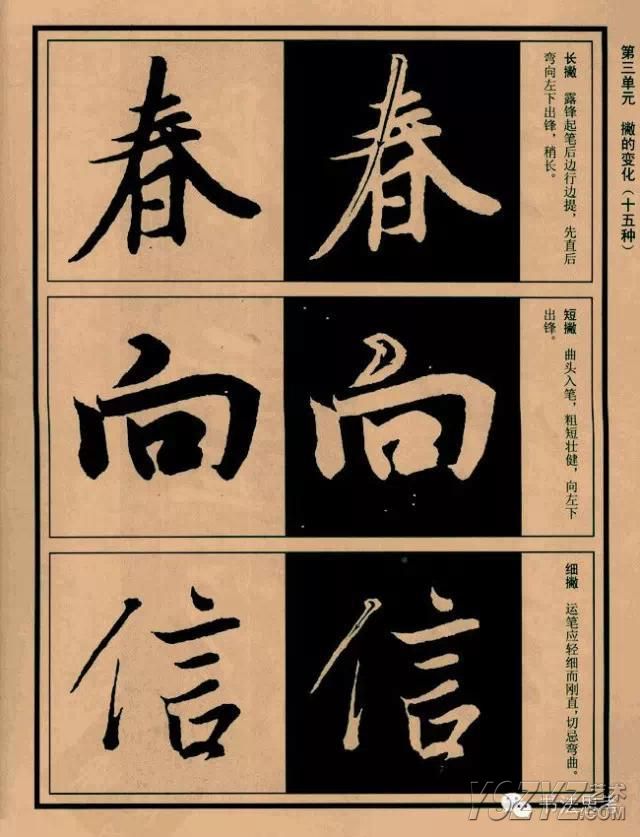 第三单元 撇的变化（十五种）
长撇 露锋起笔后边行边提，先直后
弯向左下出锋，稍长。
春 春
短撇 曲头入笔，粗短壮健，向左下
出锋。
向 向
细撇 运笔应轻细而刚直，切忌弯曲。
信 信